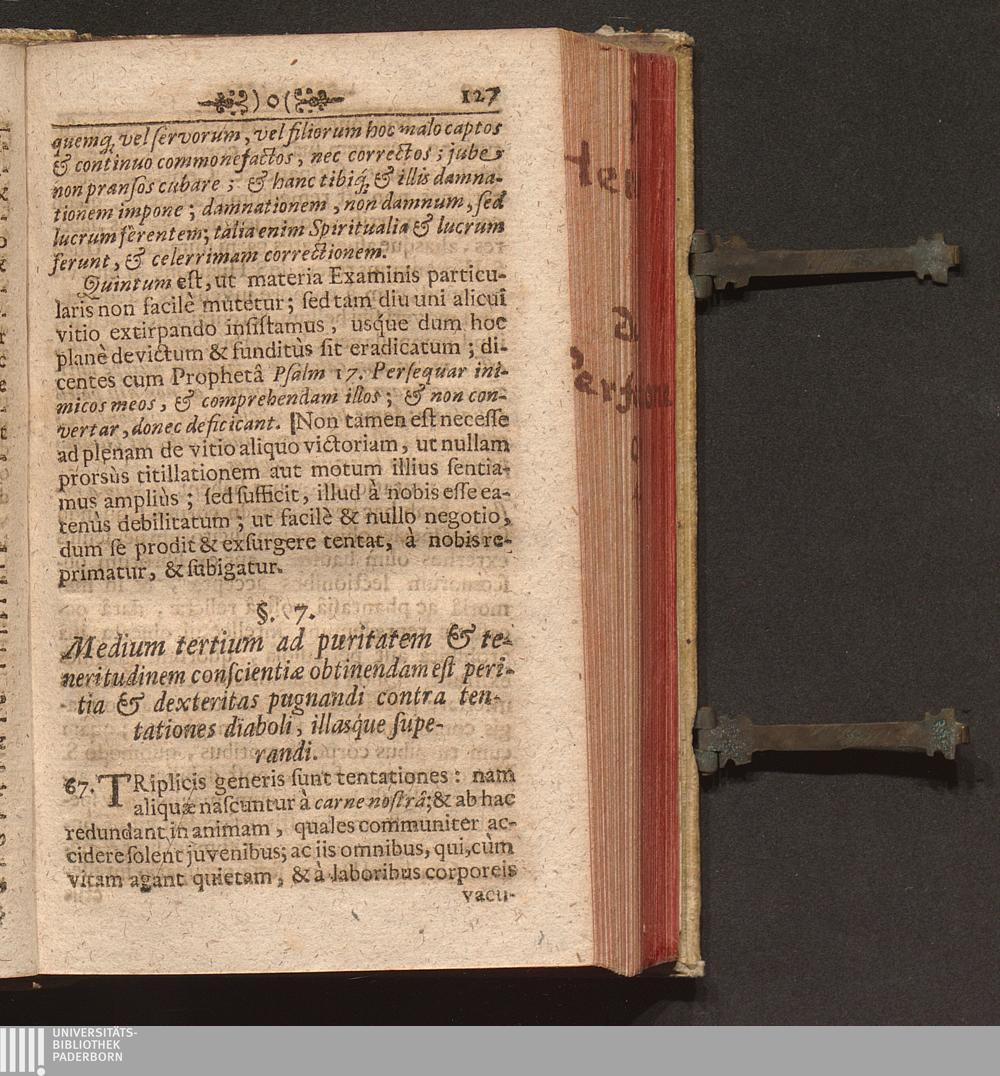 )o( 127
quemq́, vel servorum, vel filiorum hoc malo captos
& continuo commonefactos, nec correctos; jube
non pransos cubare; & hanc tibiq́, & illis damna-
tionem impone; damnationem, non damnum, sed
lucrum ferentem; talia enim Spiritualia & lucrum
ferunt, & celerrimam correctionem.
Quintum est, ut materia Examinis particu-
laris non facilè mutetur; sed tam diu uni alicui
vitio extirpando insistamus, usq́ue dum hoc
planè devictum & funditùs sit eradicatum; di-
centes cum Prophetâ Psalm 17. Persequar ini-
micos meos, & comprehendam illos; & non con-
vertar, donec deficicant. [Non tamen est necesse
ad plenam de vitio aliquo victoriam, ut nullam
prorsùs titillationem aut motum illius sentia-
mus ampliùs; sed sufficit, illud à nobis esse ea-
tenùs debilitatum; ut facilè & nullo negotio,
dum se prodit & exsurgere tentat, à nobis re-
primatur, & subigatur.
§. 7.
Medium tertium ad puritatem & te-
neritudinem conscientiæ obtinendam est peri-
tia & dexteritas pugnandi contra ten-
tationes diaboli, illasq́ue supe-
randi.
67. TRiplicis generis sunt tentationes: nam
aliquæ nascuntur à carne nostrâ; & ab hac
redundant in animam, quales communiter ac-
cidere solent juvenibus; ac iis omnibus, qui, cùm
vitam agant quietam, & à laboribus corporeis
vacu-
UNIVERSITÄTS-
BIBLIOTHEK
PADERBORN